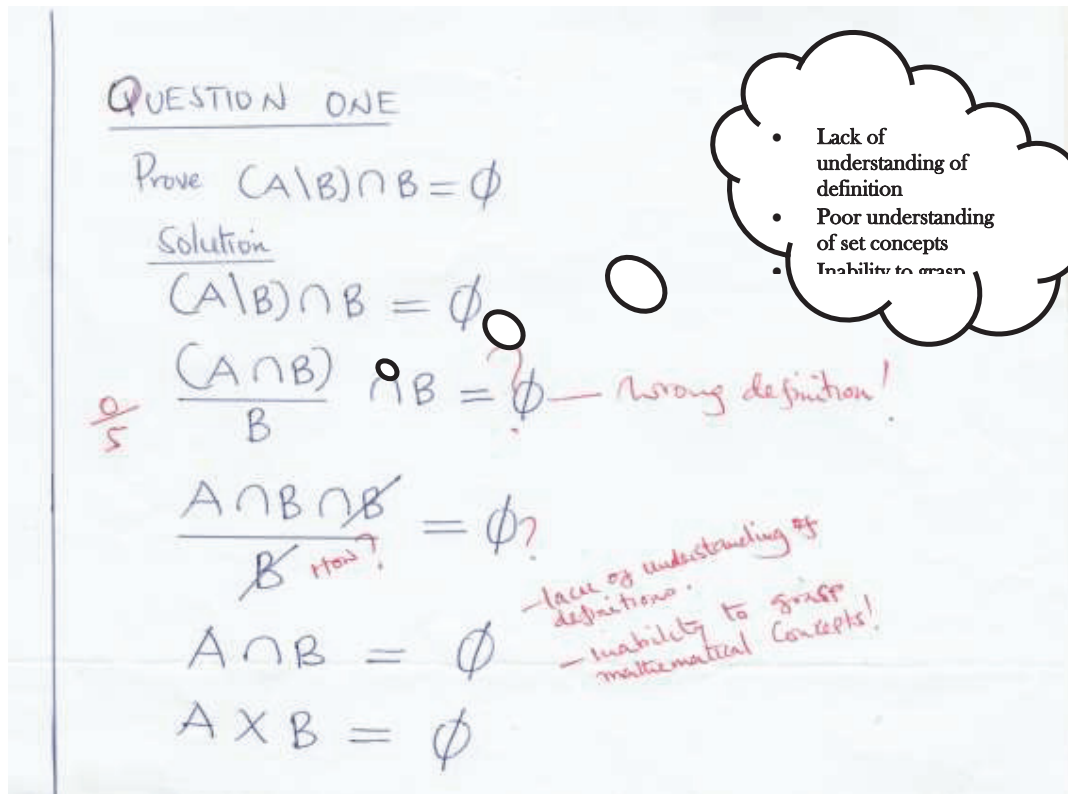 QUESTION ONE
Prove (A\B)∩B = ϕ
Solution
(A\B)∩B = ϕ
(A∩B)
B
∩B = ϕ — wrong definition!
?
0/5
A∩B∩B
B
= ϕ?
How?
A∩B = ϕ
A X B = ϕ
- lack of understanding of
definitions.
- inability to grasp
mathematical concepts!
• Lack of
understanding of
definition
• Poor understanding
of set concepts
• Inability to grasp